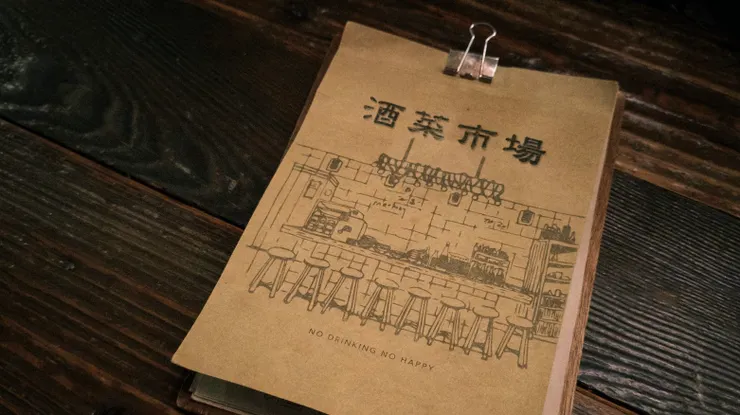 酒菜市場
NO DRINKING NO HAPPY